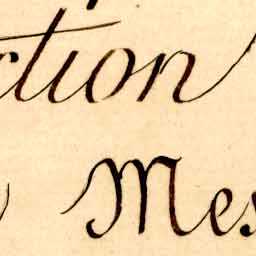 ction
Mes